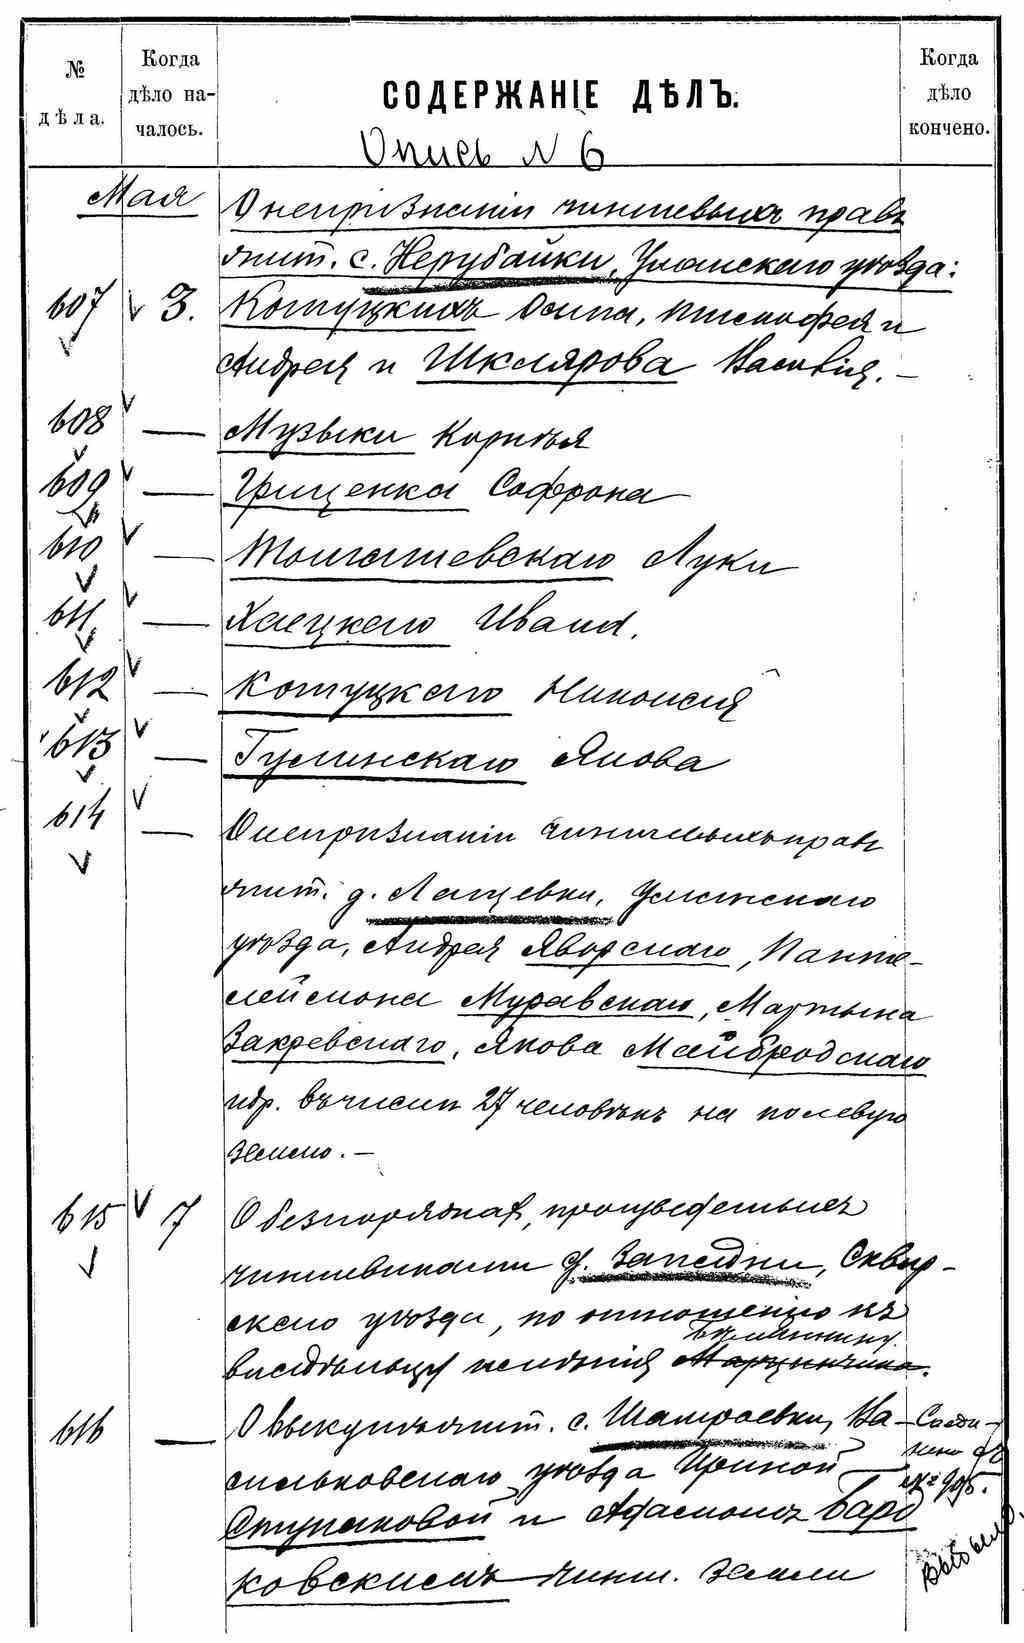 № дѣла.
Когда дѣло началось.
СОДЕРЖАНІЕ ДѢЛЪ.
Когда дѣло кончено.
Опись № 6
Мая
О непризнаніи чиншевыхъ правъ
жит. с. Нерубайки, Уманскаго уѣзда:
607 3. Котуцкихъ Осипа, Тимофея и
Андрея и Шклярова Василія. —
608 — Музыки Корнѣя
609 — Гриценка Софрона
610 — Луки
611 — Хаецкаго Ивана.
612 — Котуцкаго
613 — Гулинскаго Якова
614 — О непризнаніи чиншевыхъ правъ
жит. д. Лащевки, Уманскаго
уѣзда, Андрея Яворскаго, Панте-
леймона Муравскаго, Мартына
Закревскаго, Якова Майбродскаго
и др. въ числѣ 27 человѣкъ на полевую
землю. —
615 7 О безпорядкахъ, произведенныхъ
чиншевиками д. Западни, Сквир-
скаго уѣзда, по отношенію къ
владѣльцу имѣнія Марцинчика.
616 — О выкупѣ жит. с. Шамраевки, Ва-
сильковскаго уѣзда Ириной
Ступаковой и Адамомъ Бард
ковскимъ чинш. земли
Соеди-
нено съ
№ 995.
Выбыло.